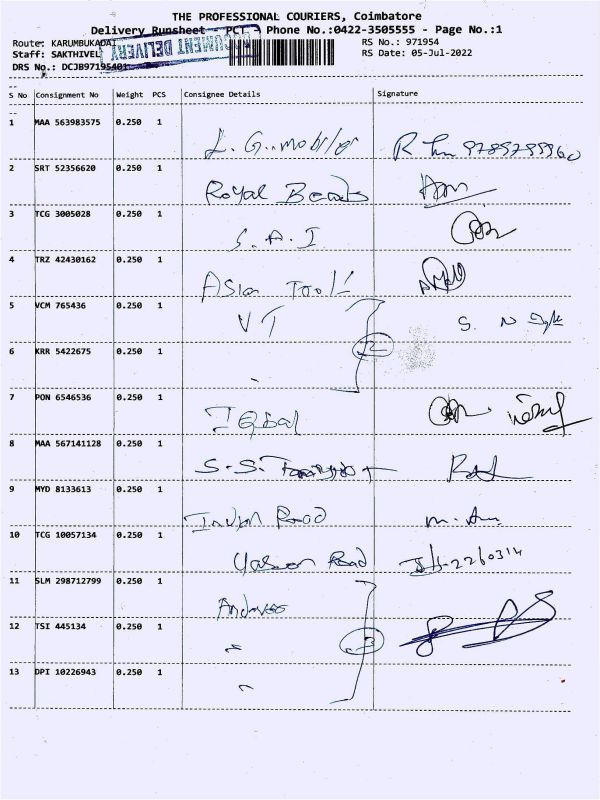 THE PROFESSIONAL COURIERS, Coimbatore
Delivery Runsheet - PCT - Phone No.:0422-3505555 - Page No.:1
Route: KARUMBUKADAI RS No.: 971954
DOCUMENT DELIVERY
Staff: SAKTHIVEL RS Date: 05-Jul-2022
DRS No.: DCJB97195401
S No Consignment No Weight PCS Consignee Details Signature
1 MAA 563983575 0.250 1
L. G. mobiles R 9789795960
2 SRT 52356620 0.250 1
Royal Beads
3 TCG 3005028 0.250 1
S. A. I
4 TRZ 42430162 0.250 1
Asian Tools
5 VCM 765436 0.250 1
VT S. N
6 KRR 5422675 0.250 1
2
7 PON 6546536 0.250 1
Iqbal
8 MAA 567141128 0.250 1
S.S.
9 MYD 8133613 0.250 1
Road m.
10 TCG 10057134 0.250 1
Road 2260314
11 SLM 298712799 0.250 1
12 TSI 445134 0.250 1
3
13 DPI 10226943 0.250 1